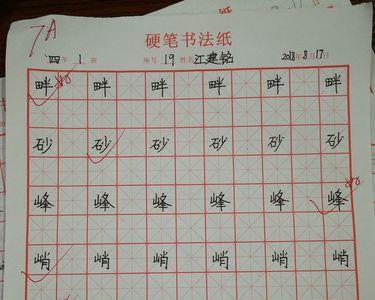 7A
硬笔书法纸
四年1班 座号19 姓名江建铭 2018年8月17日
畔畔畔畔畔畔
砂砂砂砂砂砂
峰峰峰峰峰峰
峭峭峭峭峭峭